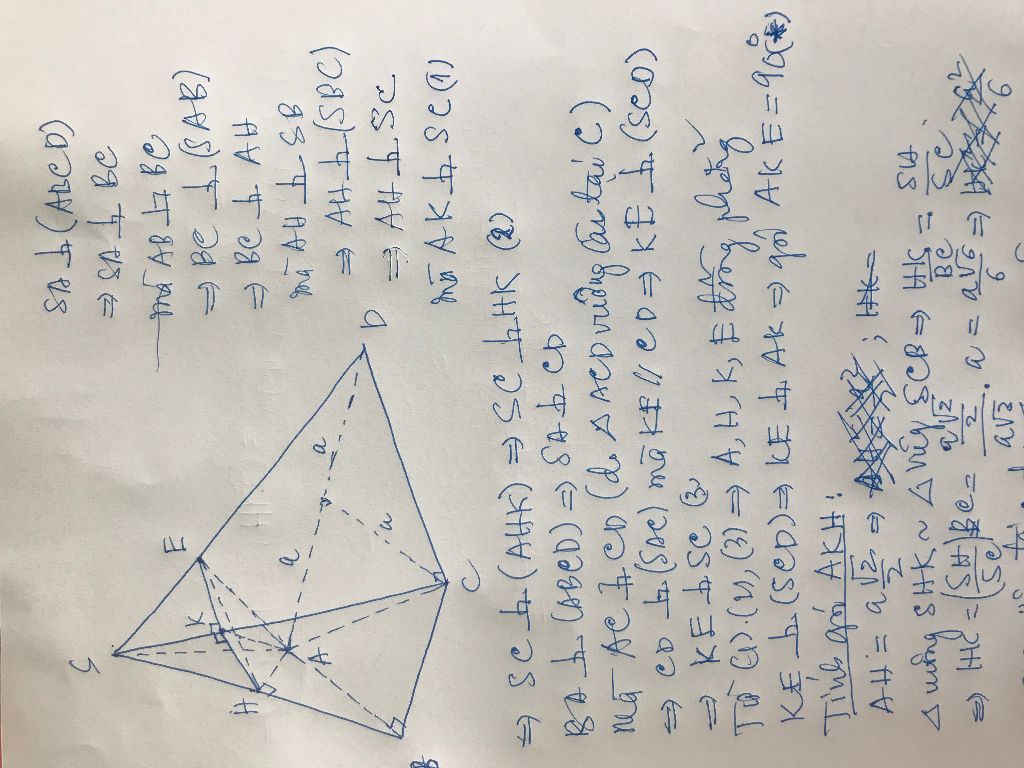 SA ⊥ (ABCD)
⇒ SA ⊥ BC
mà AB ⊥ BC
⇒ BC ⊥ (SAB)
⇒ BC ⊥ AH
mà AH ⊥ SB
⇒ AH ⊥ (SBC)
⇒ AH ⊥ SC
mà AK ⊥ SC (1)
S
E
K
H
A
a
a
a
D
C
B
⇒ SC ⊥ (AHK) ⇒ SC ⊥ HK (2)
BA ⊥ (ABCD) ⇒ SA ⊥ CD
Mà AC ⊥ CD (do Δ ACD vuông cân tại C)
⇒ CD ⊥ (SAC) mà KE // CD ⇒ KE ⊥ (SCD)
⇒ KE ⊥ SC (3)
Từ (1), (2), (3) ⇒ A, H, K, E đồng phẳng
KE ⊥ (SCD) ⇒ KE ⊥ AK ⇒ góc AKE = 90° (*)
Tính góc AKH:
AH = a√2/2 ⇒ ; HK =
Δ vuông SHK ~ Δ vuông SCB ⇒ HK/BC = SH/SC
⇒ HK = (SH/SC)BC = a√2/2 / a√3 . a = a√6/6 ⇒